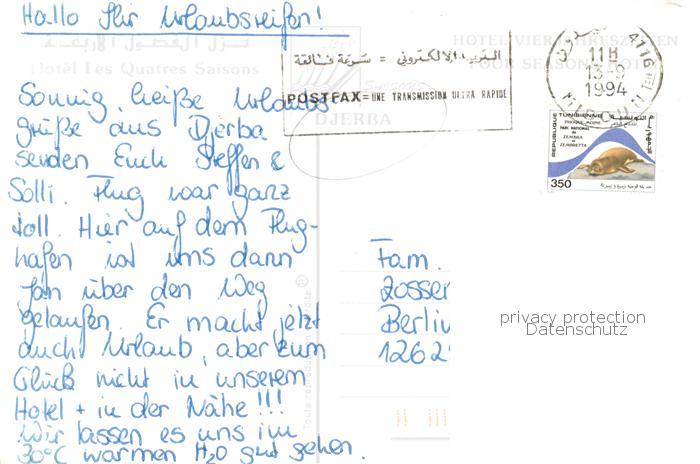 Hallo Ihr Urlaubsreifen!
نزل الفصول الأربعة
Hotel Les Quatres Saisons
HOTEL VIER JAHRESZEITEN
FOUR SEASONS HOTEL
البريد الالكتروني = سرعة فائقة
POSTFAX = UNE TRANSMISSION ULTRA RAPIDE
4116
11H
13-9
1994
MIDOUN
DJERBA
REPUBLIQUE TUNISIENNE
PHOQUE MOINE
PARC NATIONAL
DE
ZEMBRA
ET
ZEMBRETTA
350
Sonnig, heiße Urlaubs
grüße aus Djerba
senden Euch Steffen &
Solli. Flug war ganz
toll. Hier auf dem Flug-
hafen ist uns dann
Jan über den Weg
gelaufen. Er macht jetzt
auch Urlaub, aber zum
Glück nicht in unserem
Hotel + in der Nähe!!!
Wir lassen es uns im
30°C warmen H2O gut gehen.
Fam.
Zosser
Berlin
1262
privacy protection
Datenschutz